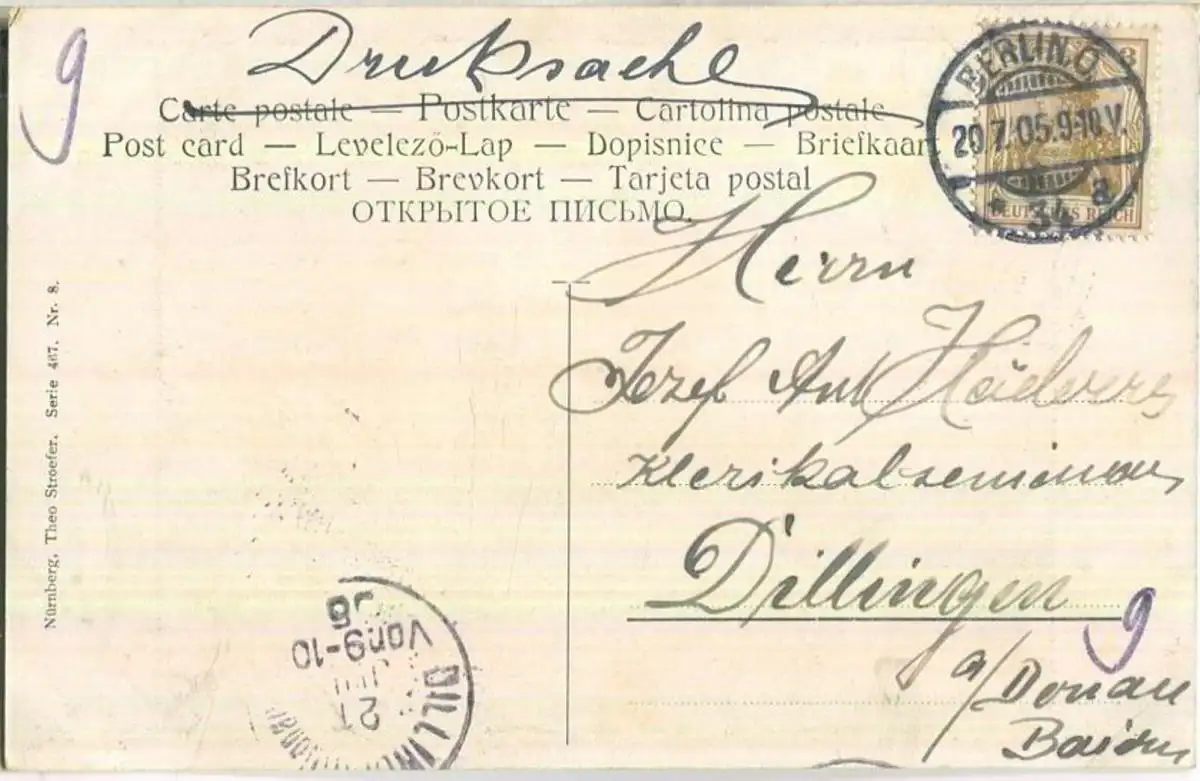 9
Drucksache
Carte postale — Postkarte — Cartolina postale
Post card — Levelező-Lap — Dopisnice — Briefkaart
Brefkort — Brevkort — Tarjeta postal
ОТКРЫТОЕ ПИСЬМО.
BERLIN.O.
20.7.05.9-10V.
* 34 a
DEUTSCHES REICH
3
Herrn
Jozef Ant
Klerikalseminar
Dillingen
9
a/Donau
Nürnberg, Theo Stroefer. Serie 467. Nr. 8.
DILLIN
21
Vor.9-10